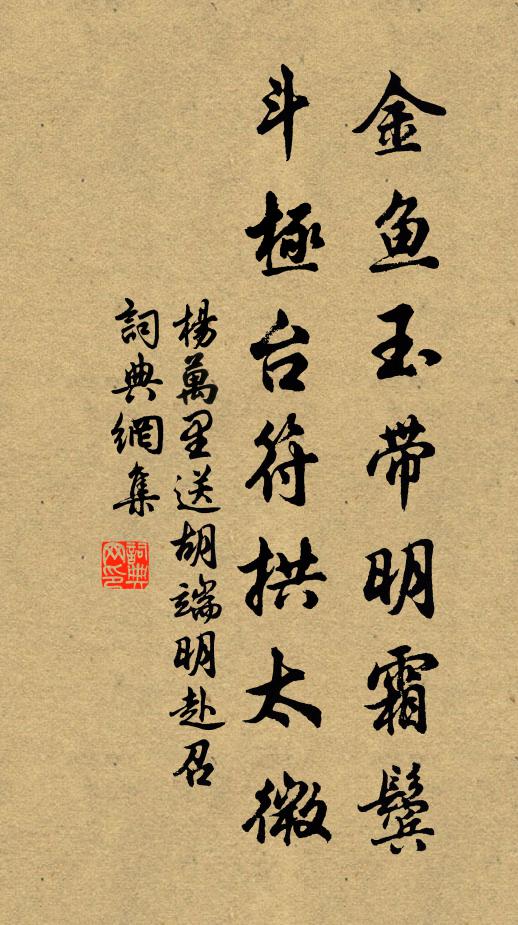 金鱼玉带明霜鬓
斗極台符拱太微
楊萬里送胡端明赴召
詞典網集
詞典网印